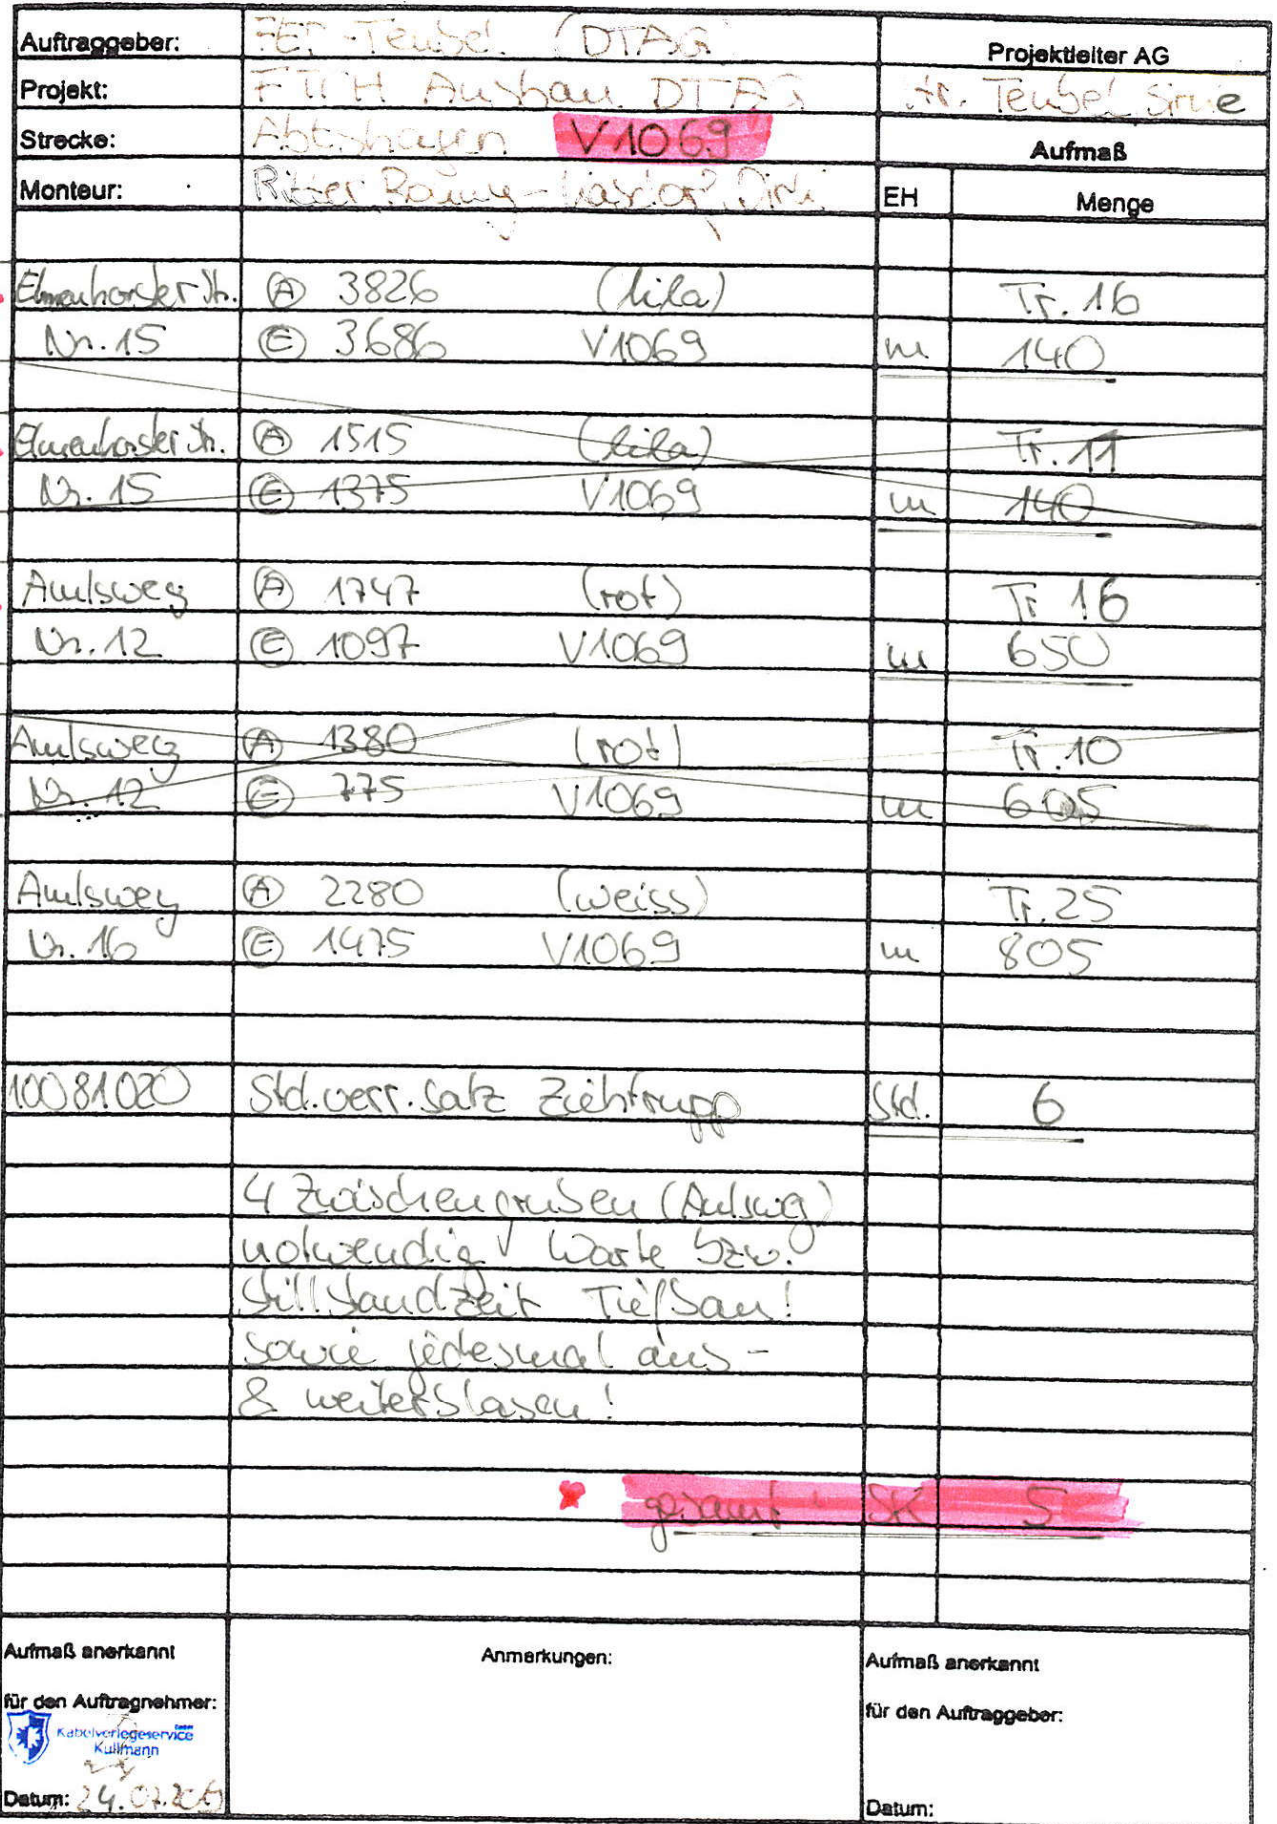 Auftraggeber: FET-Teubel (DTAG
Projektleiter AG
Projekt: FTTH Ausbau DTAG
Hr. Teubel, Sirue
Strecke: Abtshagen V1069
Aufmaß
Monteur: Ritter Ronny - Dirk
EH Menge
Elmenhorster Str. Ⓐ 3826 (lila) Tr. 16
Nr. 15 Ⓔ 3686 V1069 m 140
Elmenhorster Str. Ⓐ 1515 (lila) Tr. 11
Nr. 15 Ⓔ 1375 V1069 m 140
Amtsweg Ⓐ 1747 (rot) Tr 16
Nr. 12 Ⓔ 1097 V1069 m 650
Amtsweg Ⓐ 1380 (rot) Tr. 10
Nr. 12 Ⓔ 775 V1069 m 605
Amtsweg Ⓐ 2280 (weiss) Tr. 25
Nr. 16 Ⓔ 1475 V1069 m 805
10081020 Std.verr.satz Ziehtrupp Std. 6
4 Zwischengruben (Amtsweg)
notwendig Warte bzw.
Stillstandzeit Tiefbau!
sowie jedesmal aus-
& weiterblasen!
gesamt SK 5
Aufmaß anerkannt
für den Auftragnehmer:
Kabelverlegeservice GmbH
Kullmann
Datum: 24.07.20
Anmerkungen:
Aufmaß anerkannt
für den Auftraggeber:
Datum: